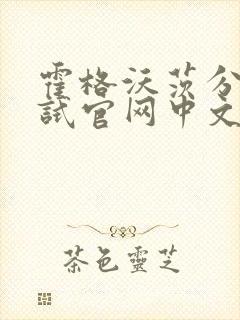 霍格沃茨分
试官网中文
茶色靈芝